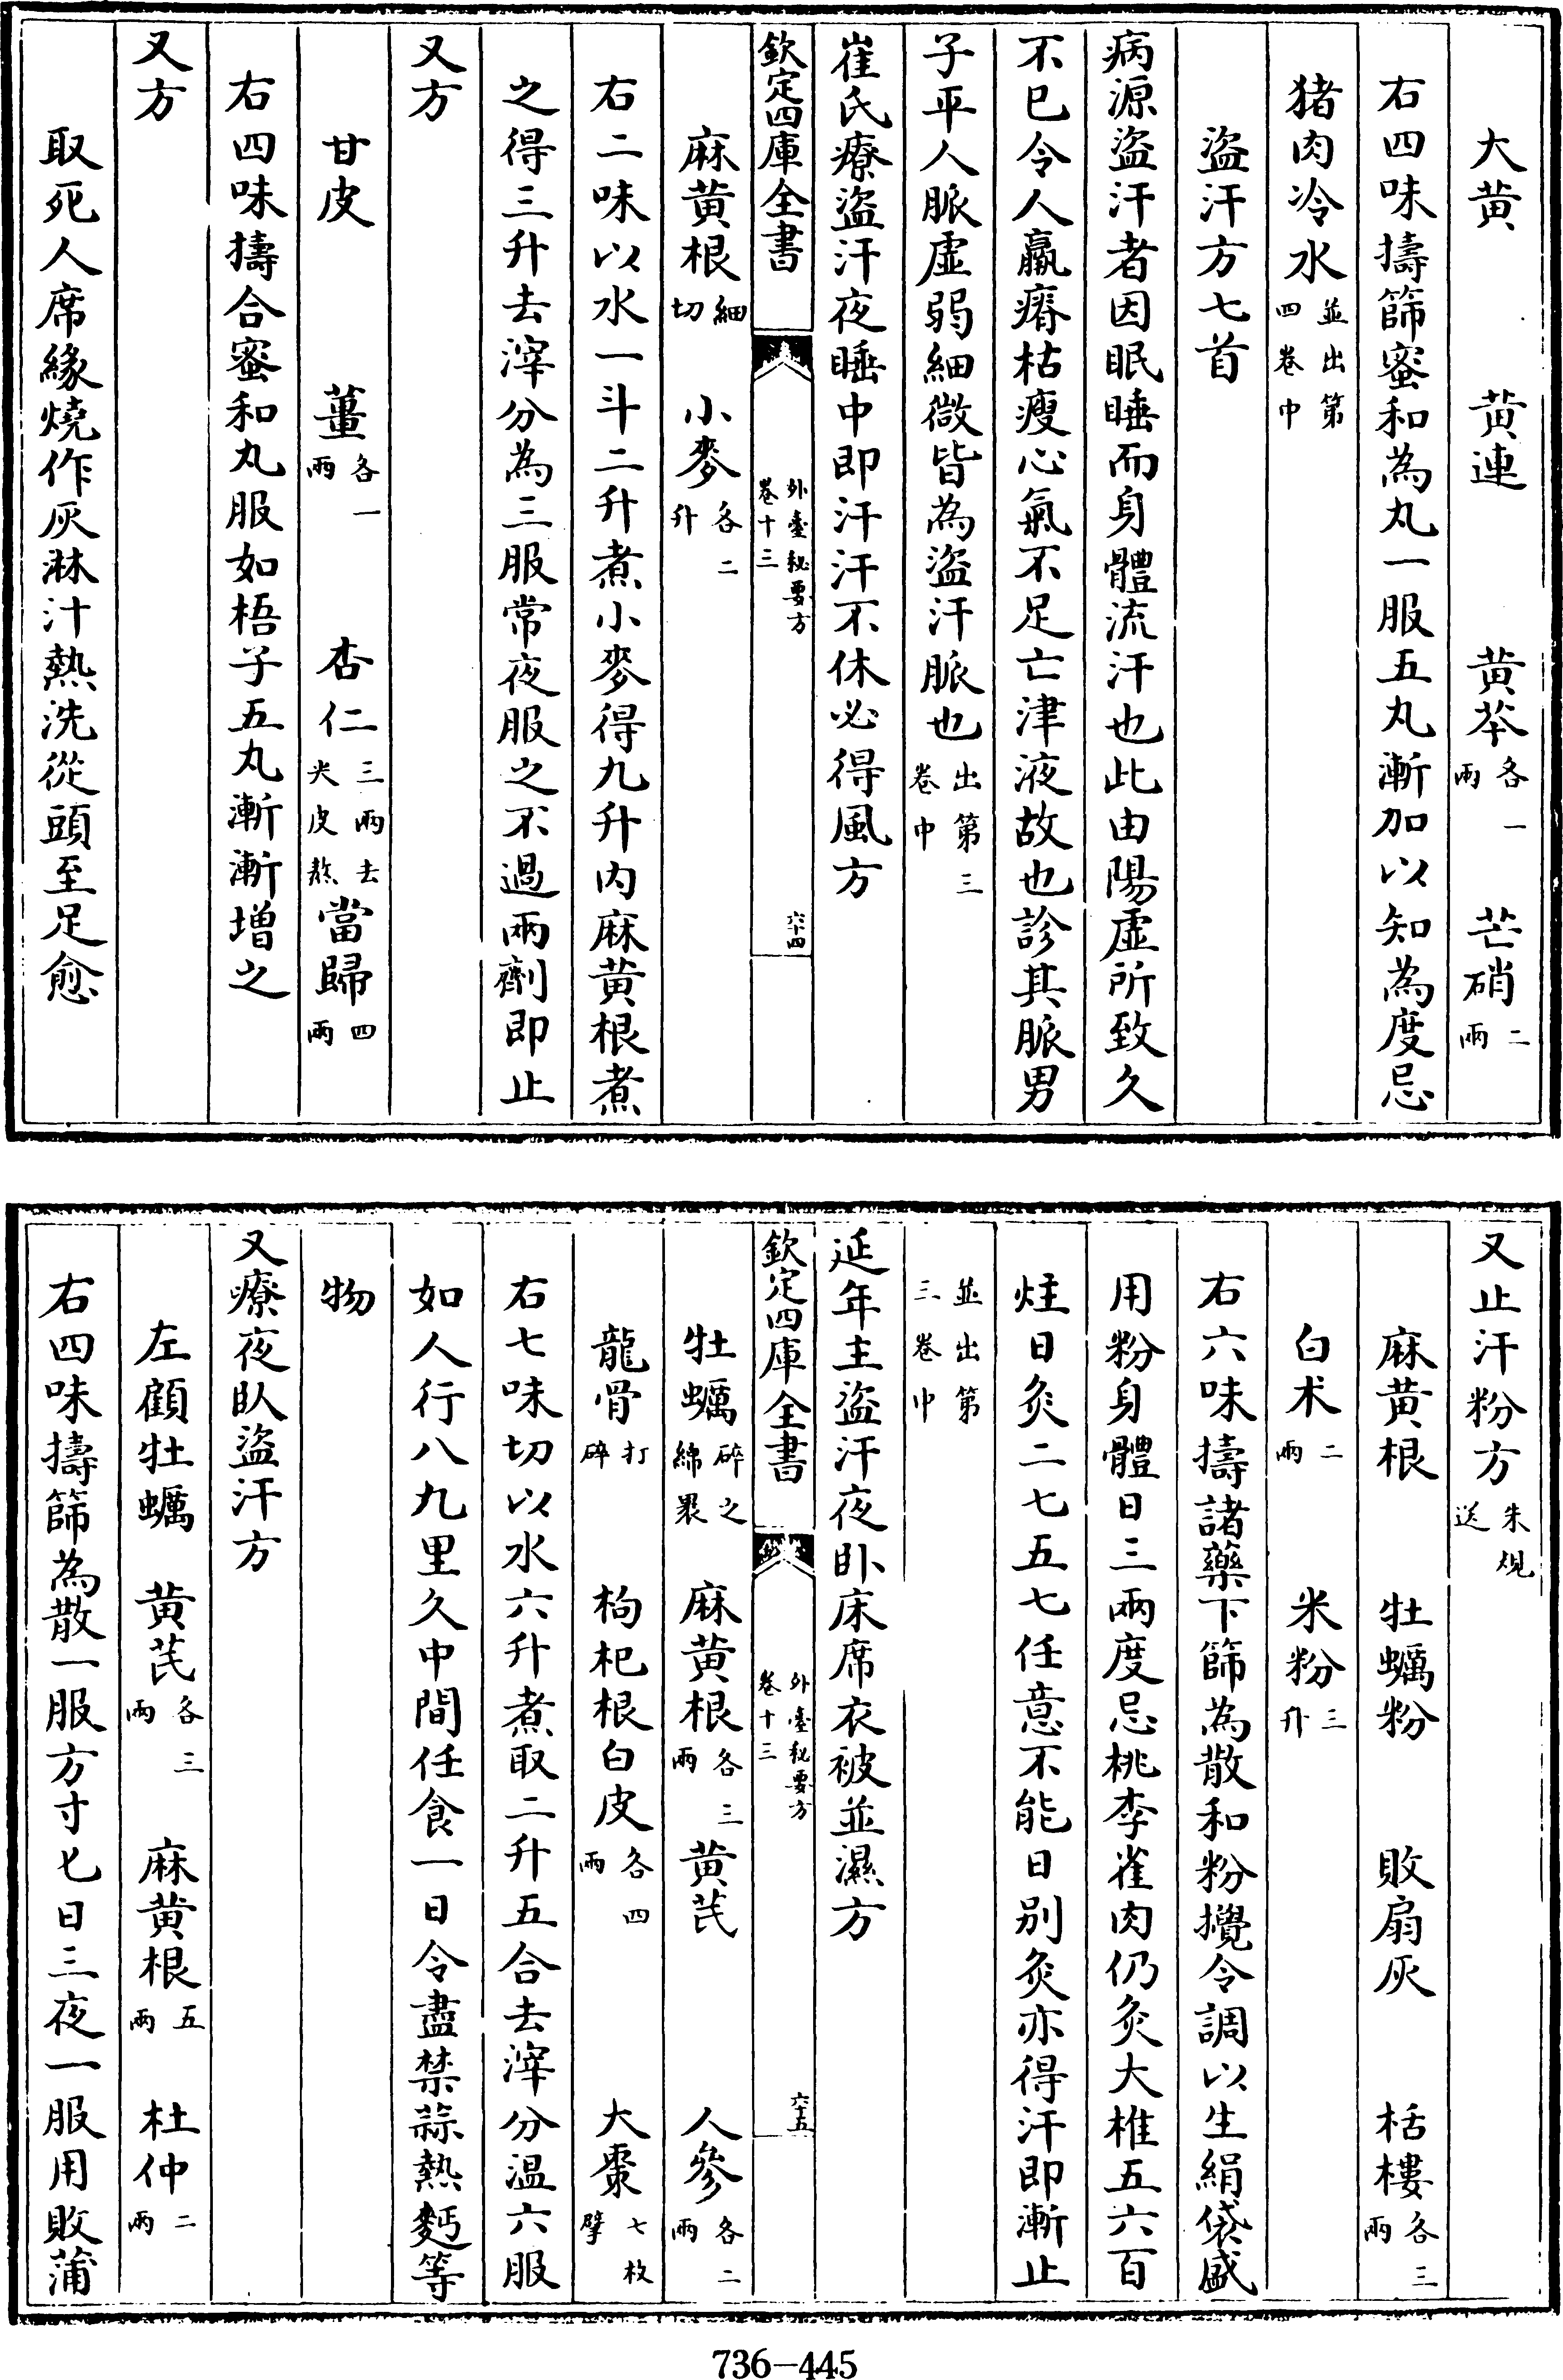 大黄 黄連 黄芩各一兩 芒硝二兩
右四味擣篩蜜和為丸一服五丸漸加以知為度忌
猪肉冷水並出第四卷中
盜汗方七首
病源盜汗者因眠睡而身體流汗也此由陽虛所致久
不已令人羸瘠枯瘦心氣不足亡津液故也診其脈男
子平人脈虛弱細微皆為盜汗脈也出第三卷中
崔氏療盜汗夜睡中即汗汗不休必得風方
欽定四庫全書 外臺秘要方卷十三 六十四
麻黄根細切 小麥各二升
右二味以水一斗二升煮小麥得九升内麻黄根煮
之得三升去滓分為三服常夜服之不過兩劑即止
又方
甘皮 薑各一兩 杏仁三兩去尖皮熬 當歸四兩
右四味擣合蜜和丸服如梧子五丸漸漸增之
又方
取死人席緣燒作灰淋汁熱洗從頭至足愈
又止汗粉方朱規送
麻黄根 牡蠣粉 敗扇灰 栝樓各三兩
白术二兩 米粉三升
右六味擣諸藥下篩為散和粉攪令調以生絹袋盛
用粉身體日三兩度忌桃李雀肉仍灸大椎五六百
炷日灸二七五七任意不能日别灸亦得汗即漸止
並出第三卷中
延年主盜汗夜卧床席衣被並濕方
欽定四庫全書 外臺秘要方卷十三 六十五
牡蠣碎之綿裹 麻黄根各三兩 黄芪 人參各二兩
龍骨打碎 枸杞根白皮各四兩 大棗七枚擘
右七味切以水六升煮取二升五合去滓分温六服
如人行八九里久中間任食一日令盡禁蒜熱麪等
物
又療夜臥盜汗方
左顧牡蠣 黄芪各三兩 麻黄根五兩 杜仲二兩
右四味擣篩為散一服方寸匕日三夜一服用敗蒲
736-445